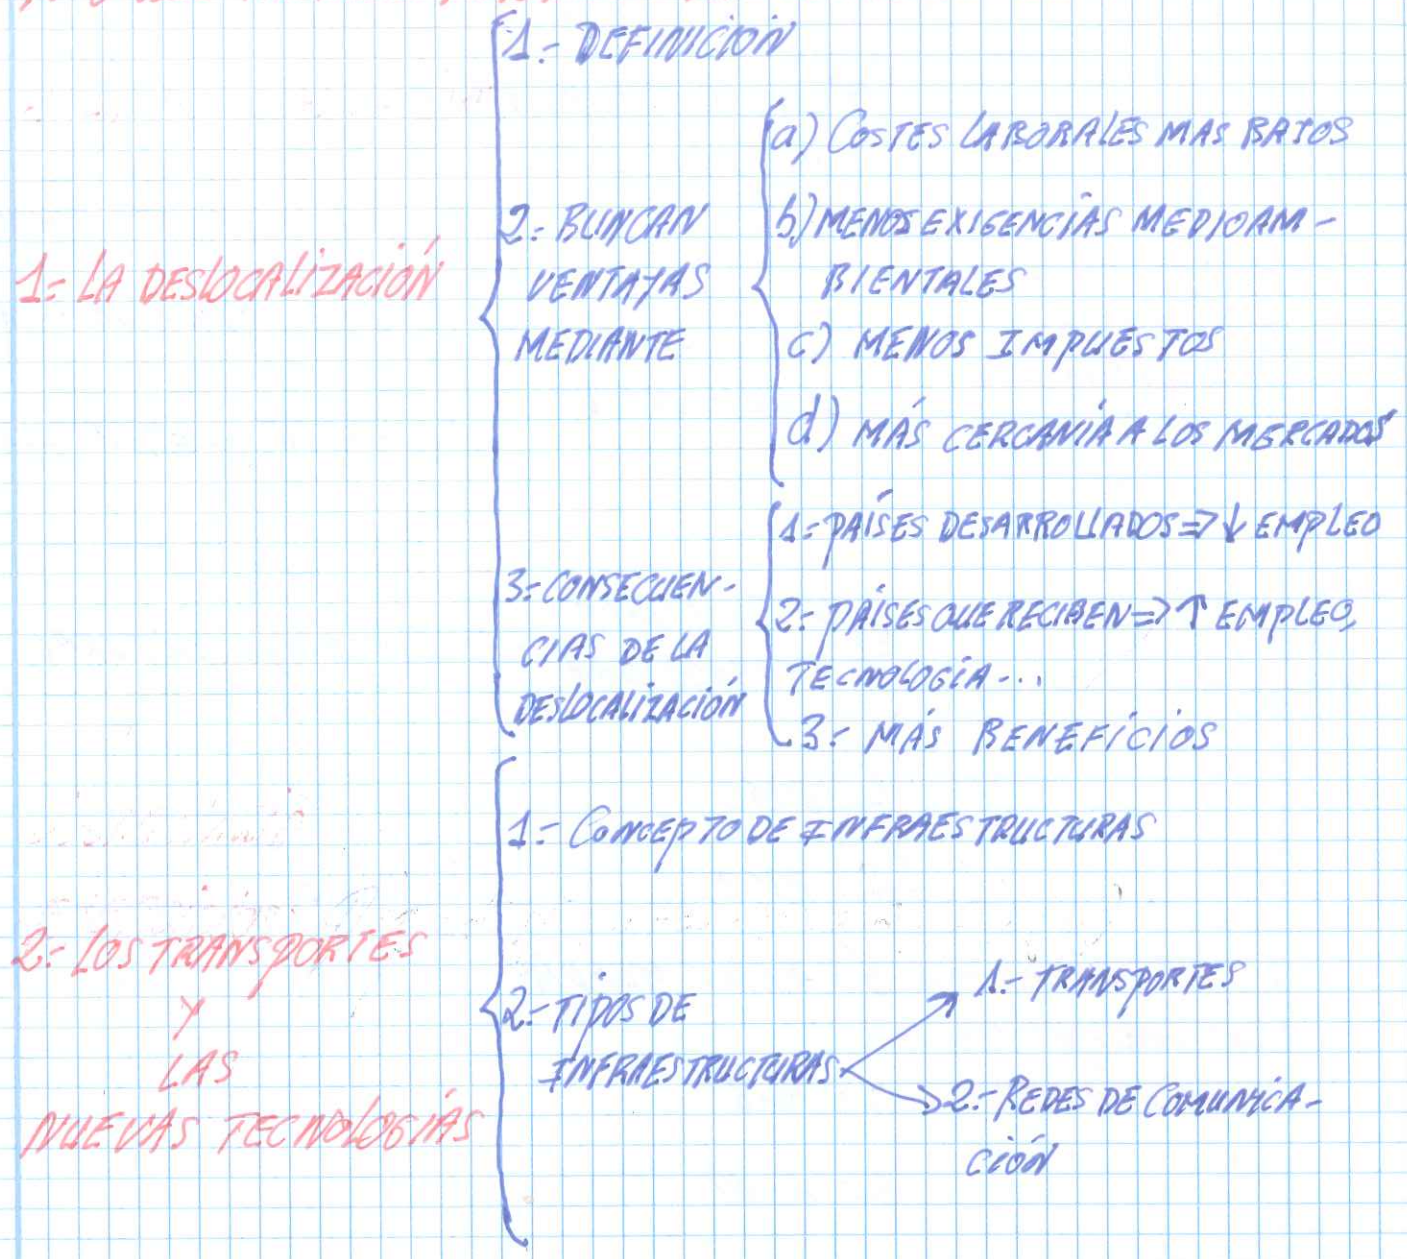 1.- DEFINICIÓN
1- LA DESLOCALIZACIÓN
2- BUNCAN
VENTAYAS
MEDIANTE
a) COSTES LABORALES MAS BAJOS
b) MENOS EXIGENCIAS MEDIOAM-
BIENTALES
c) MENOS IMPUESTOS
d) MÁS CERCANÍA A LOS MERCADOS
3- CONSECUEN-
CIAS DE LA
DESLOCALIZACIÓN
1- PAÍSES DESARROLLADOS => ↓ EMPLEO
2- PAÍSES QUE RECIBEN => ↑ EMPLEO,
TECNOLOGÍA...
3- MÁS BENEFICIOS
2- LOS TRANSPORTES
Y
LAS
NUEVAS TECNOLOGÍAS
1- CONCEPTO DE INFRAESTRUCTURAS
2- TIPOS DE
INFRAESTRUCTURAS
1.- TRANSPORTES
2.- REDES DE COMUNICA-
CIÓN